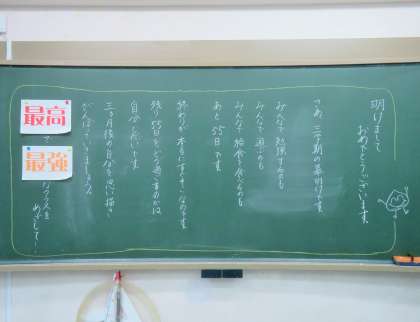 明けまして
おめでとうございます。
さあ、三学期の幕開けです。
みんなで勉強するのも
みんなで遊ぶのも
みんなで給食を食べるのも
あと55日です。
終わりが本当にすぐそこなのです。
残り55日をどう過ごすのかは
自分しだいです。
三ヶ月後の自分を思い描き
がんばっていきましょう。
最高で
最強なクラスを
めざして